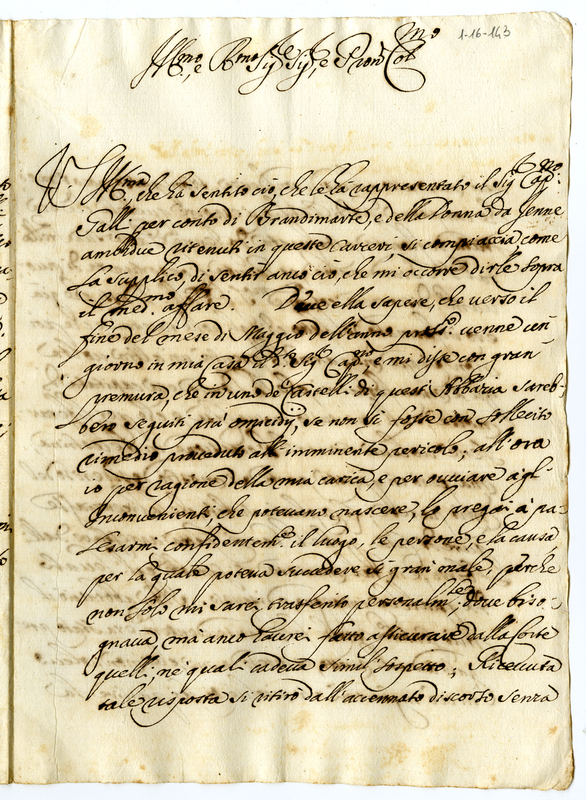 1-16-143
Ill.mo, e R.mo Sig.re Sig.re, e Pron Col.mo
V. S. Ill.ma, che ha sentito ciò, che le ha rappresentato il Sig.re Cap.no
Gall. per conto di Brandimarte, e della Donna da Jenne
ambidue ritenuti in queste carceri, si compiaccia come
La supplico, di sentir anco ciò, che mi occorre dirle sopra
il med.mo affare. Deve ella sapere, che verso il
fine del mese di Maggio dell'anno pross.o venne un
giorno in mia Casa il d.o Sig.re Cap.no, e mi disse con gran
premura, che in uno de Castelli di quest'Abbazia sareb-
bero seguiti più omicidij, se non si fosse con sollecito
rimedio proceduto all'imminente pericolo; all'ora
io per ragione della mia carica, e per ovviare agl'
Inconvenienti, che potevano nascere, lo pregai à pa-
lesarmi confidentem.e il luogo, le persone, e la causa
per la quale poteva succedere sì gran male, perche
non solo mi sarei trasferito personalm.te dove biso-
gnava, mà anco haurei fatto assicurare dalla Corte
quelli, ne quali cadeva simil sospetto; Ricevuta
tale risposta si ritirò dall'accennato discorso senza